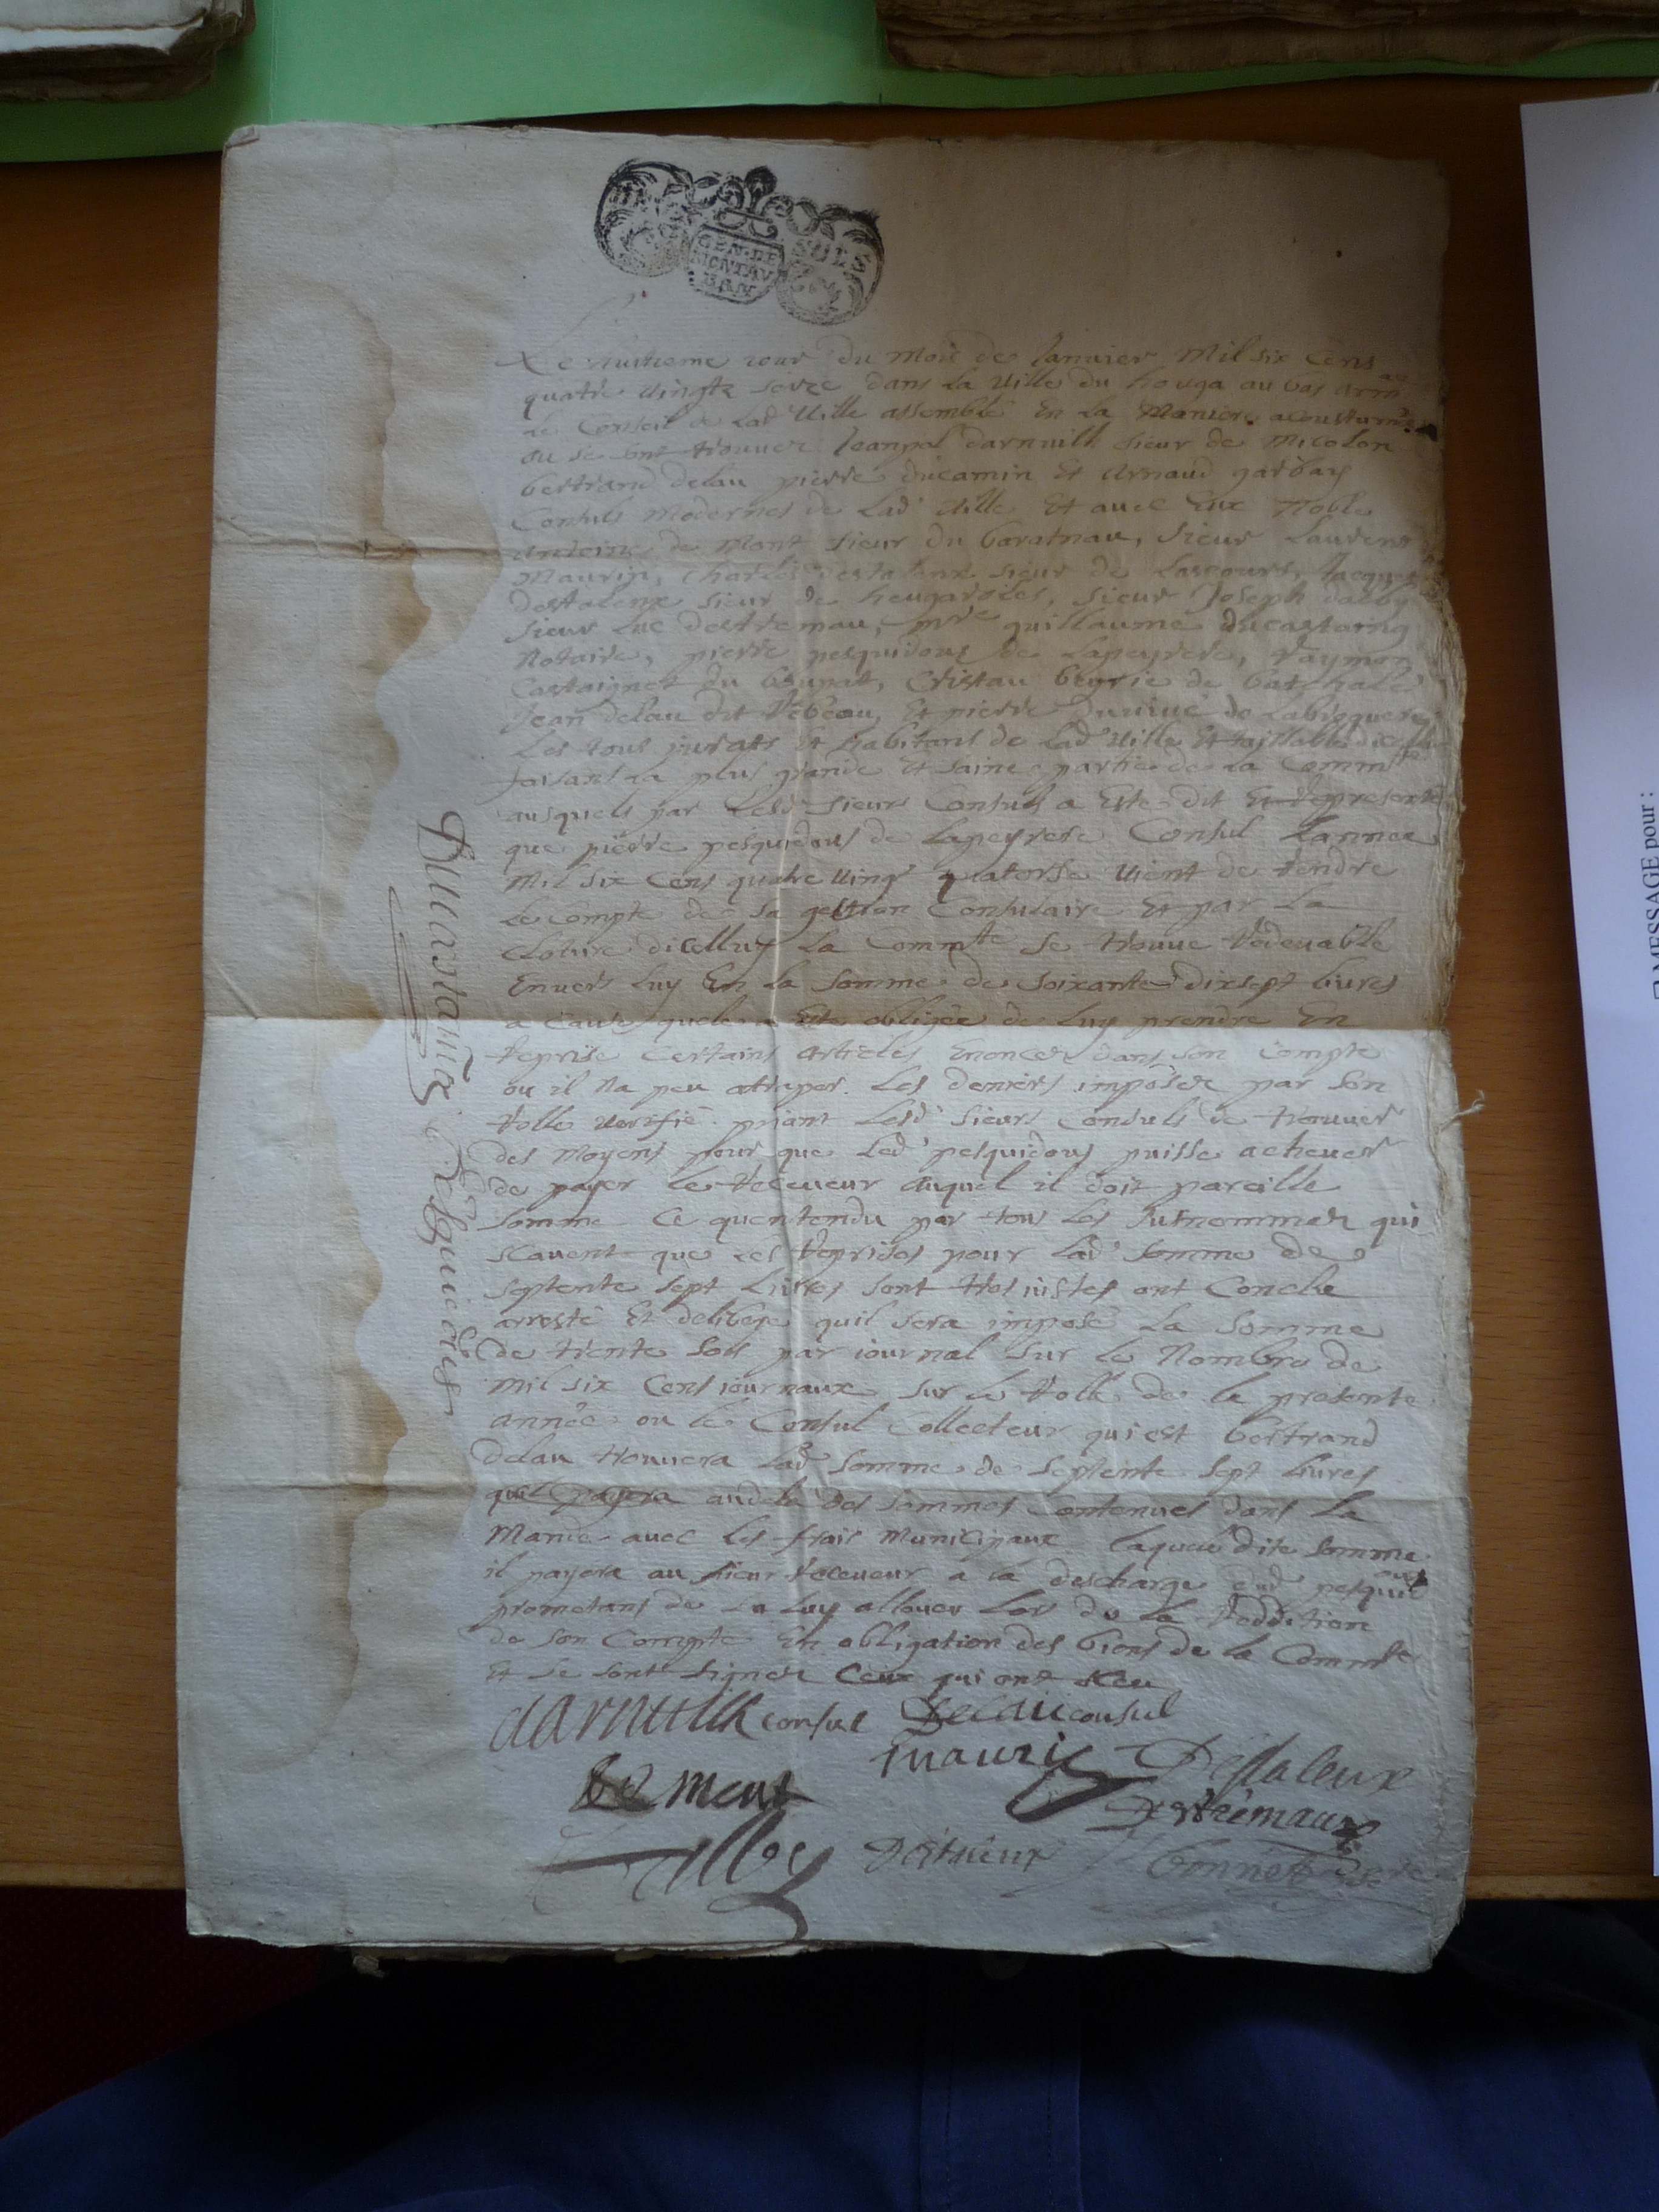 SOLS
GEN. DE
MONTAU
BAN
Le huitieme iour du Mois de Januier Mil six Cens
quatre uingtz seize dans la uille du houga au bas arm
Le Conseil de lad Uille assemblé En la Maniere acoustumé
ou se sont trouuer Jeanpol darmuill sieur de Micolon
bertrand delau pierre ducamin Et Arnaud garbay
Consuls Modernes de Lad Uille Et auec Eux Noble
Antoine de Mont sieur du baratnau, sieur Laurens
Maurin, Charles destaleux sieur de Lascours, Jacques
destaleux sieur de heugaroles, sieur Joseph dalby
sieur Luc destremau, mre guillaume ducastaing
Notaire, pierre pesquidous de Lapeyrere, raymon
Castaignet du , Cristau beyrie de batchale
Jean delau dit , Et pierre de Labroquere
Les tous jurats Et habitans de Lad Uille Et taillables dicelle
faisans La plus grande Et saine partie de La Commte
ausquels par Lesd sieurs Consuls a Este dit Et represente
que pierre pesquidous de Lapeyrere Consul Lannee
Mil six Cens quatre uingt quatorse uient de rendre
Le Compte de sa gestion Consulaire Et par La
Cloture dicelluy La Commte se trouue redeuable
Enuers Luy En La somme de soixante dixsept liures
a Cause quele a Este obligée de Luy prendre En
reprise Certains articles Enoncez dans son Compte
ou il Na peu atraper Les deniers imposez par son
rolle uerifié priant Lesd sieurs Consuls de trouuer
des Moyens pour que Led pesquidous puisse acheuer
de payer Le receueur auquel il doit pareille
somme Ce quentendu par tous Les susnommez qui
scauent que Les reprises pour Lad somme de
septente sept Liures sont tres iustes ont Conclu
arresté Et deliberé quil sera imposé La somme
de trente sols par iournal sur le Nombre de
Mil six Cens iournaux sur le rolle de la presente
année ou le Consul Collecteur qui est bertrand
delau trouuera Lad somme de septente sept Liures
quil payera audela des sommes Contenues dans La
Mande auec les frais Municipaux laquele dite somme
il payera au sieur receueur a la descharge dud pesquidous
prometans de La Luy allouer Lors de la reddition
de son Compte En obligation des biens de la Commte
Et se sont signez Ceux qui ont sceu
darmuill consul Delau consul
Maurin Destaleux
De Mont Destremau
Dalby Destaleux